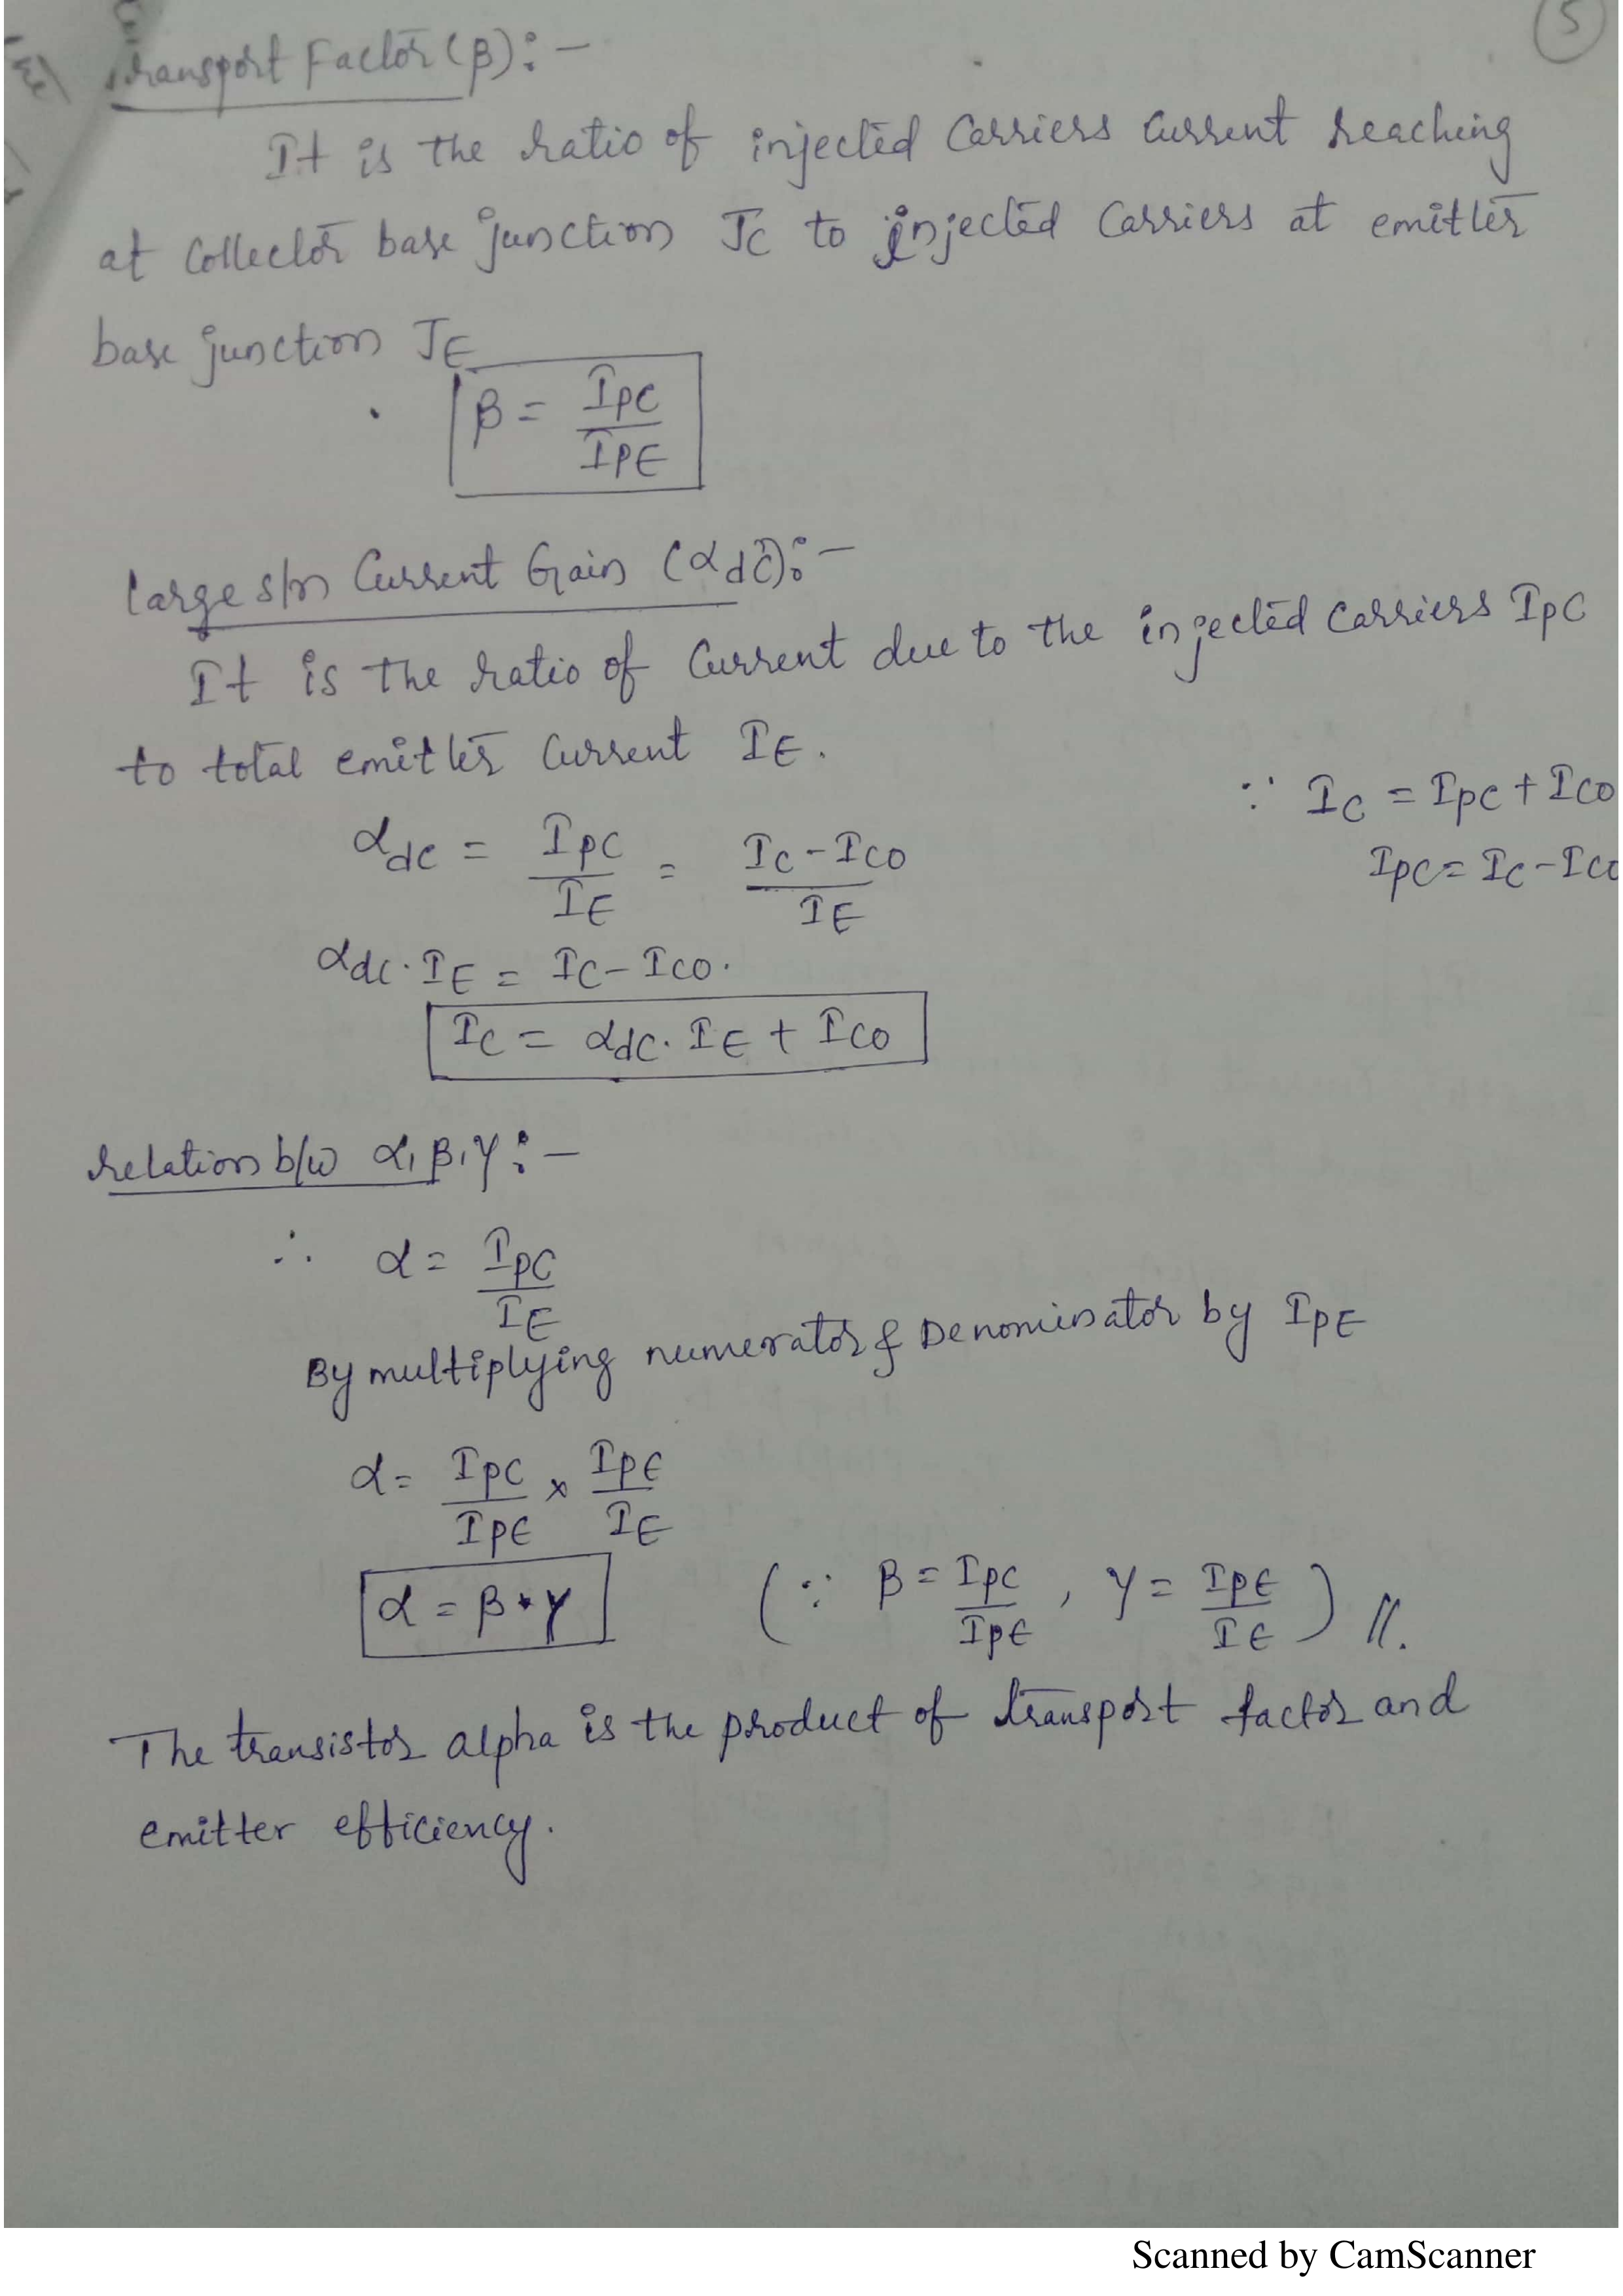 5
Transport Factor (β):-
It is the ratio of injected Carriers Current reaching
at Collector base junction JC to injected Carriers at emitter
base junction JE
β = IPC / IPE
Large s/n Current Gain (αdc):-
It is the ratio of Current due to the injected Carriers IPC
to total emitter Current IE.
∵ IC = IPC + ICO
αdc = IPC / IE = IC - ICO / IE
IPC = IC - ICO
αdc . IE = IC - ICO.
IC = αdc . IE + ICO
relation b/w α, β, γ :-
∴ α = IPC / IE
By multiplying numerator & Denominator by IPE
α = IPC / IPE × IPE / IE
α = β * γ (∵ β = IPC / IPE , γ = IPE / IE) //.
The transistor alpha is the product of transport factor and
emitter efficiency.
Scanned by CamScanner